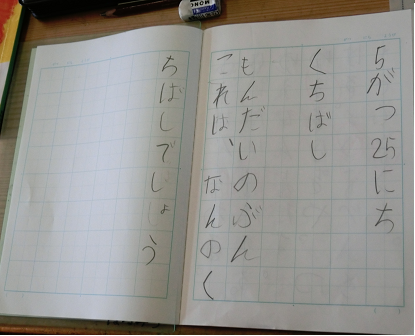 5がつ25にち
くちばし
もんだいのぶん
これは、なんのく
ちばしでしょう
MONO